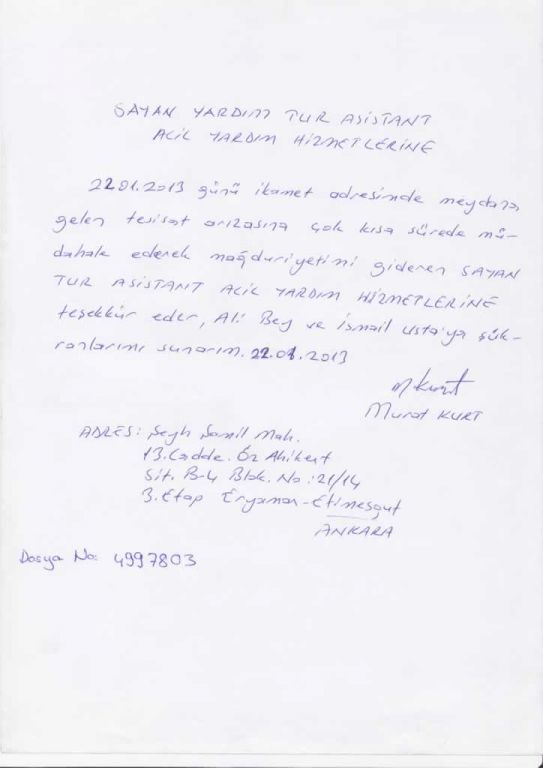 SAYAN YARDIM TUR ASİSTANT
ACİL YARDIM HİZMETLERİNE
22.01.2013 günü ikamet adresimde meydana
gelen tesisat arızasına çok kısa sürede mü-
dahale ederek mağduriyetimi gideren SAYAN
TUR ASİSTANT ACİL YARDIM HİZMETLERİNE
teşekkür eder, Ali Bey ve İsmail Usta'ya şük-
ranlarımı sunarım. 22.01.2013
M.Kurt
Murat KURT
ADRES: Şeyh Şamil Mah.
13.Cadde. Öz Ahikent
Sit. B-4 Blok. No: 21/14
3.Etap Eryaman-Etimesgut
ANKARA
Dosya No: 4997803